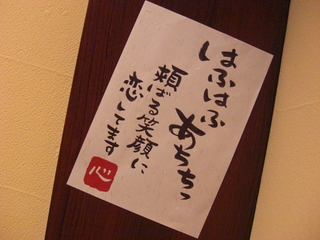 はふはふ
あちちっ
頬ばる笑顔に
恋してます
心